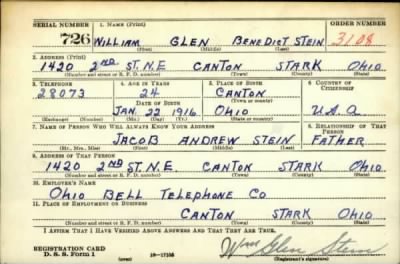 SERIAL NUMBER 1. NAME (Print) ORDER NUMBER
726 WILLIAM GLEN BENEDICT STEIN 3108
(First) (Middle) (Last)
2. ADDRESS (Print)
1420 2ND ST. N.E CANTON STARK OHIO
(Number and street or R. F. D. number) (Town) (County) (State)
3. TELEPHONE 4. AGE IN YEARS 5. PLACE OF BIRTH 6. COUNTRY OF CITIZENSHIP
28073 24 CANTON
DATE OF BIRTH (Town or county)
JAN 22 1916 OHIO U.S.A
(Exchange) (Number) (Mo.) (Day) (Yr.) (State or country)
7. NAME OF PERSON WHO WILL ALWAYS KNOW YOUR ADDRESS 8. RELATIONSHIP OF THAT PERSON
JACOB ANDREW STEIN FATHER
(Mr., Mrs., Miss) (First) (Middle) (Last)
9. ADDRESS OF THAT PERSON
1420 2ND ST. N.E. CANTON STARK OHIO
(Number and street or R. F. D. number) (Town) (County) (State)
10. EMPLOYER'S NAME
OHIO BELL TELEPHONE CO
11. PLACE OF EMPLOYMENT OR BUSINESS
CANTON STARK OHIO
(Number and street or R. F. D. number) (Town) (County) (State)
I AFFIRM THAT I HAVE VERIFIED ABOVE ANSWERS AND THAT THEY ARE TRUE.
REGISTRATION CARD
D. S. S. Form 1 16-17105 Wm Glen Stein
(Registrant's signature)